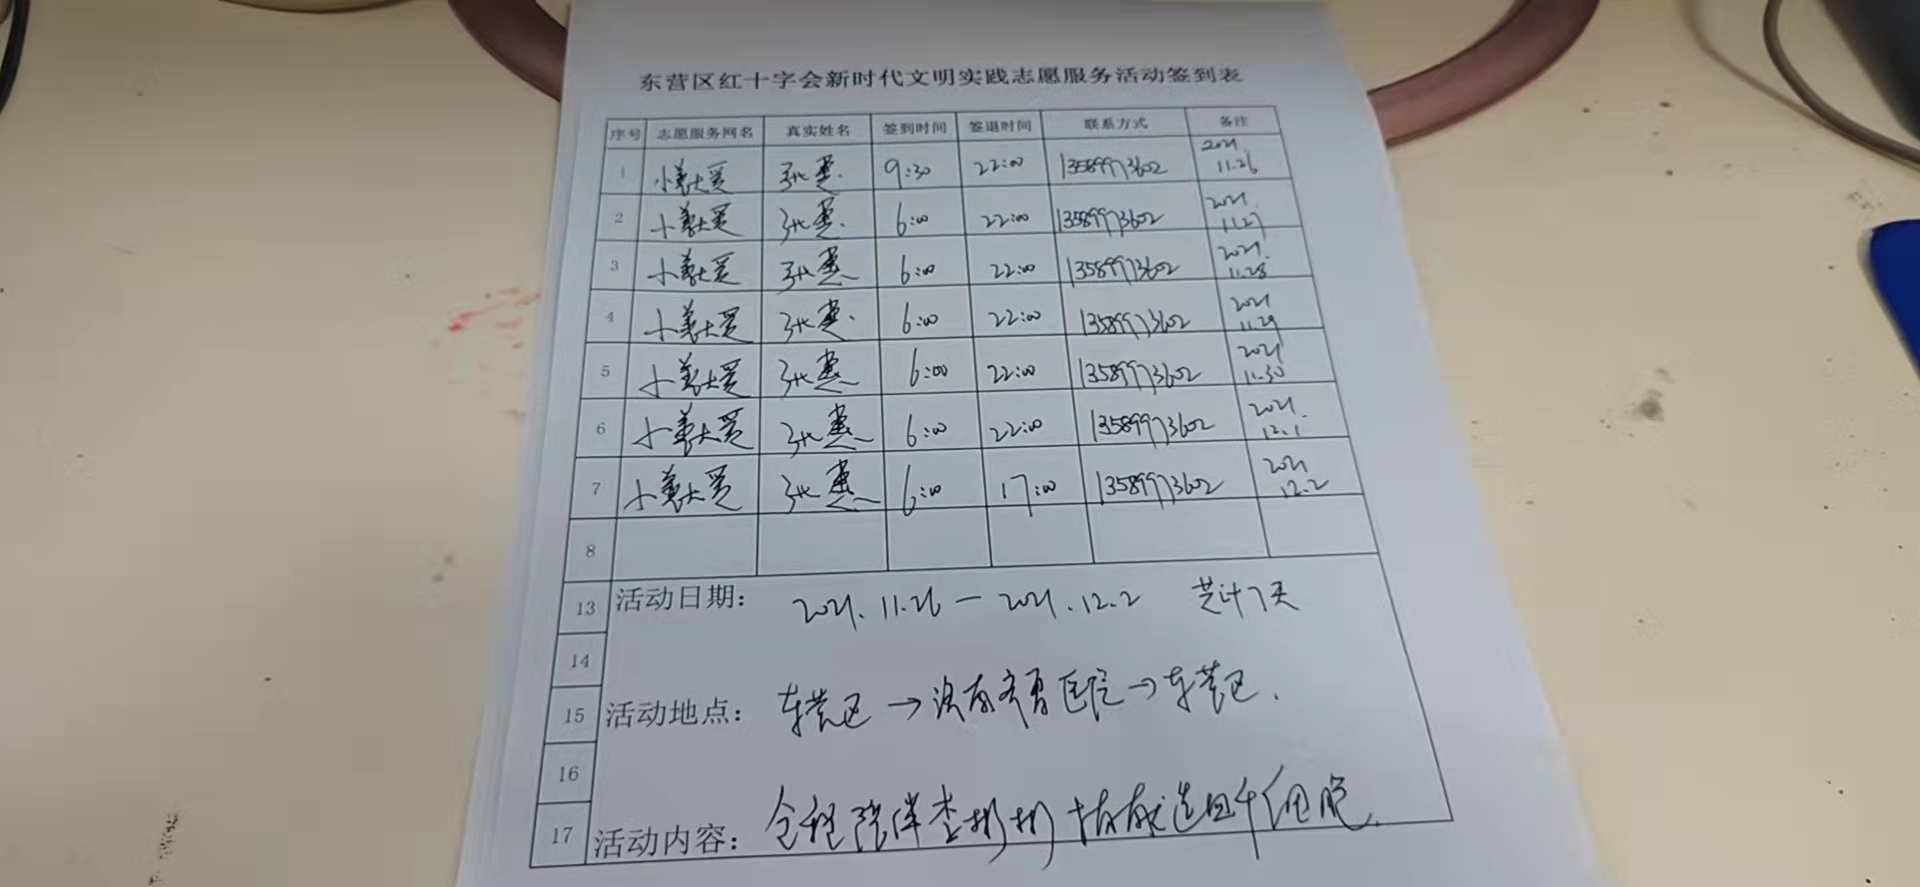 东营区红十字会新时代文明实践志愿服务活动签到表
序号 志愿服务网名 真实姓名 签到时间 签退时间 联系方式 备注
1 小美大爱 张燕 9:30 22:00 13589973602 2021 11.26
2 小美大爱 张燕 6:00 22:00 13589973602 2021. 11.27
3 小美大爱 张燕 6:00 22:00 13589973602 2021. 11.28
4 小美大爱 张燕 6:00 22:00 13589973602 2021 11.29
5 小美大爱 张燕 6:00 22:00 13589973602 2021 11.30
6 小美大爱 张燕 6:00 22:00 13589973602 2021. 12.1
7 小美大爱 张燕 6:00 17:00 13589973602 2021 12.2
8
13 活动日期: 2021.11.26—2021.12.2 共计7天
14
15 活动地点: 东营区→济南齐鲁医院→东营区.
16
17 活动内容: 全程陪伴李彬彬捐献造血干细胞.